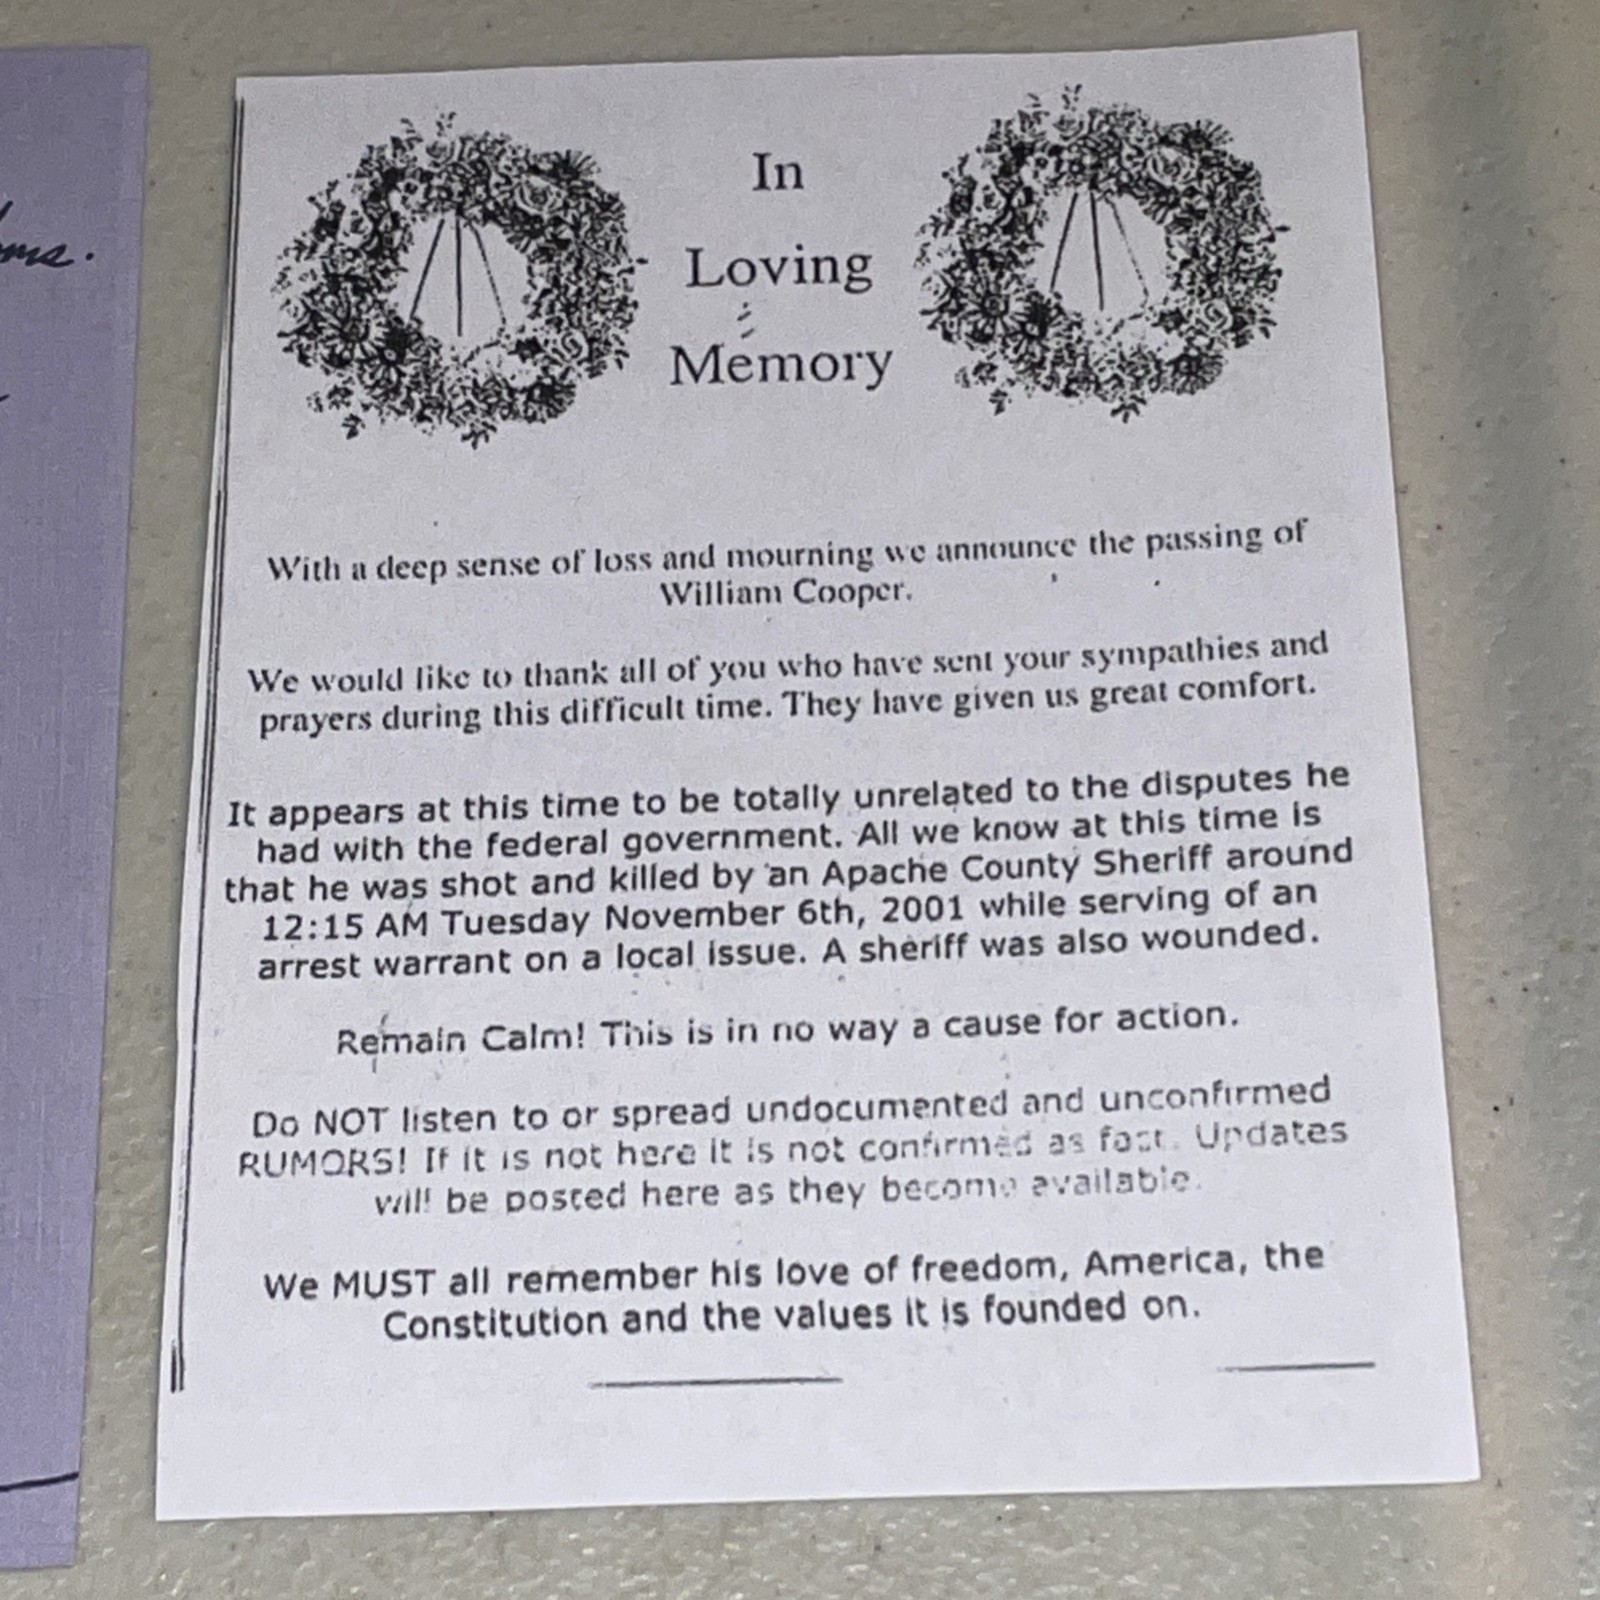 In
Loving
Memory
With a deep sense of loss and mourning we announce the passing of
William Cooper.
We would like to thank all of you who have sent your sympathies and
prayers during this difficult time. They have given us great comfort.
It appears at this time to be totally unrelated to the disputes he
had with the federal government. All we know at this time is
that he was shot and killed by an Apache County Sheriff around
12:15 AM Tuesday November 6th, 2001 while serving of an
arrest warrant on a local issue. A sheriff was also wounded.
Remain Calm! This is in no way a cause for action.
Do NOT listen to or spread undocumented and unconfirmed
RUMORS! If it is not here it is not confirmed as fact. Updates
will be posted here as they become available.
We MUST all remember his love of freedom, America, the
Constitution and the values it is founded on.